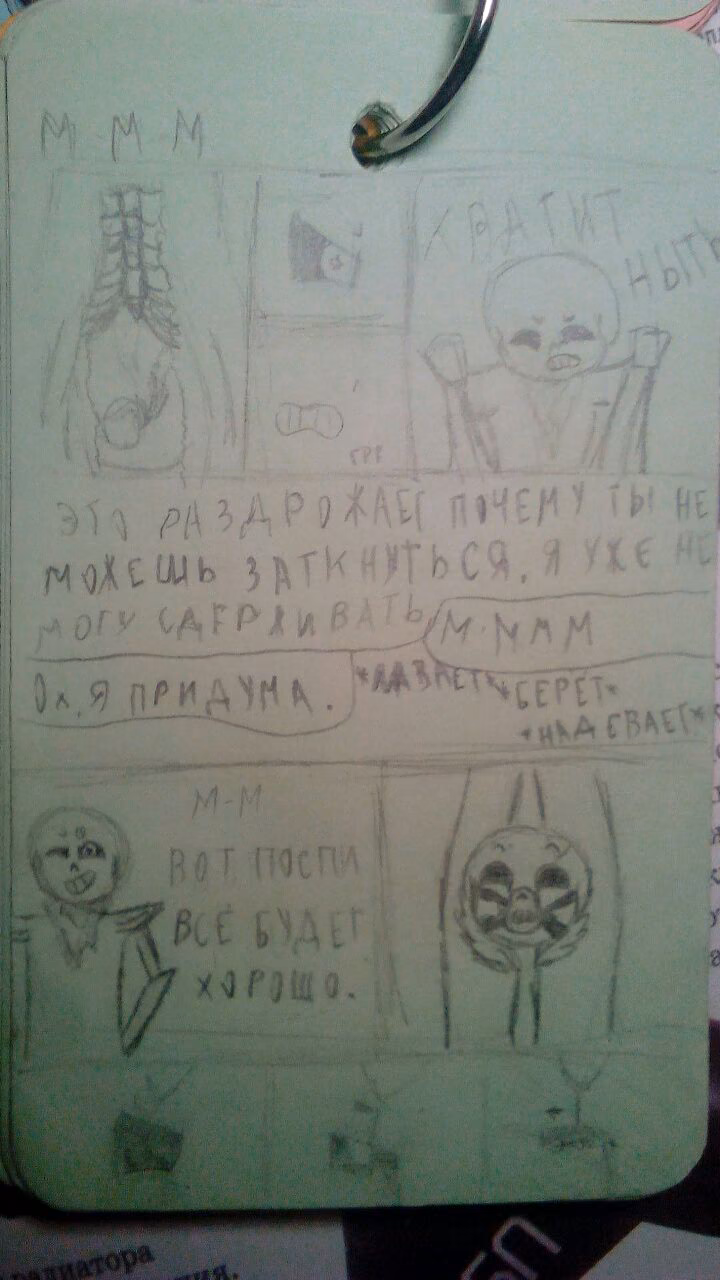 М М М
ХВАТИТ
НЫТЬ
ГРР
ЭТО РАЗДРОЖАЕТ ПОЧЕМУ ТЫ НЕ
МОЖЕШЬ ЗАТКНУТЬСЯ. Я УЖЕ НЕ
МОГУ СДЕРЖИВАТЬ
М-МММ
ОХ, Я ПРИДУМА.
*БЕРЁТ*
*НАДЕВАЕТ*
М-М
ВОТ ПОСПИ
ВСЁ БУДЕТ
ХОРОШО.
радиатора